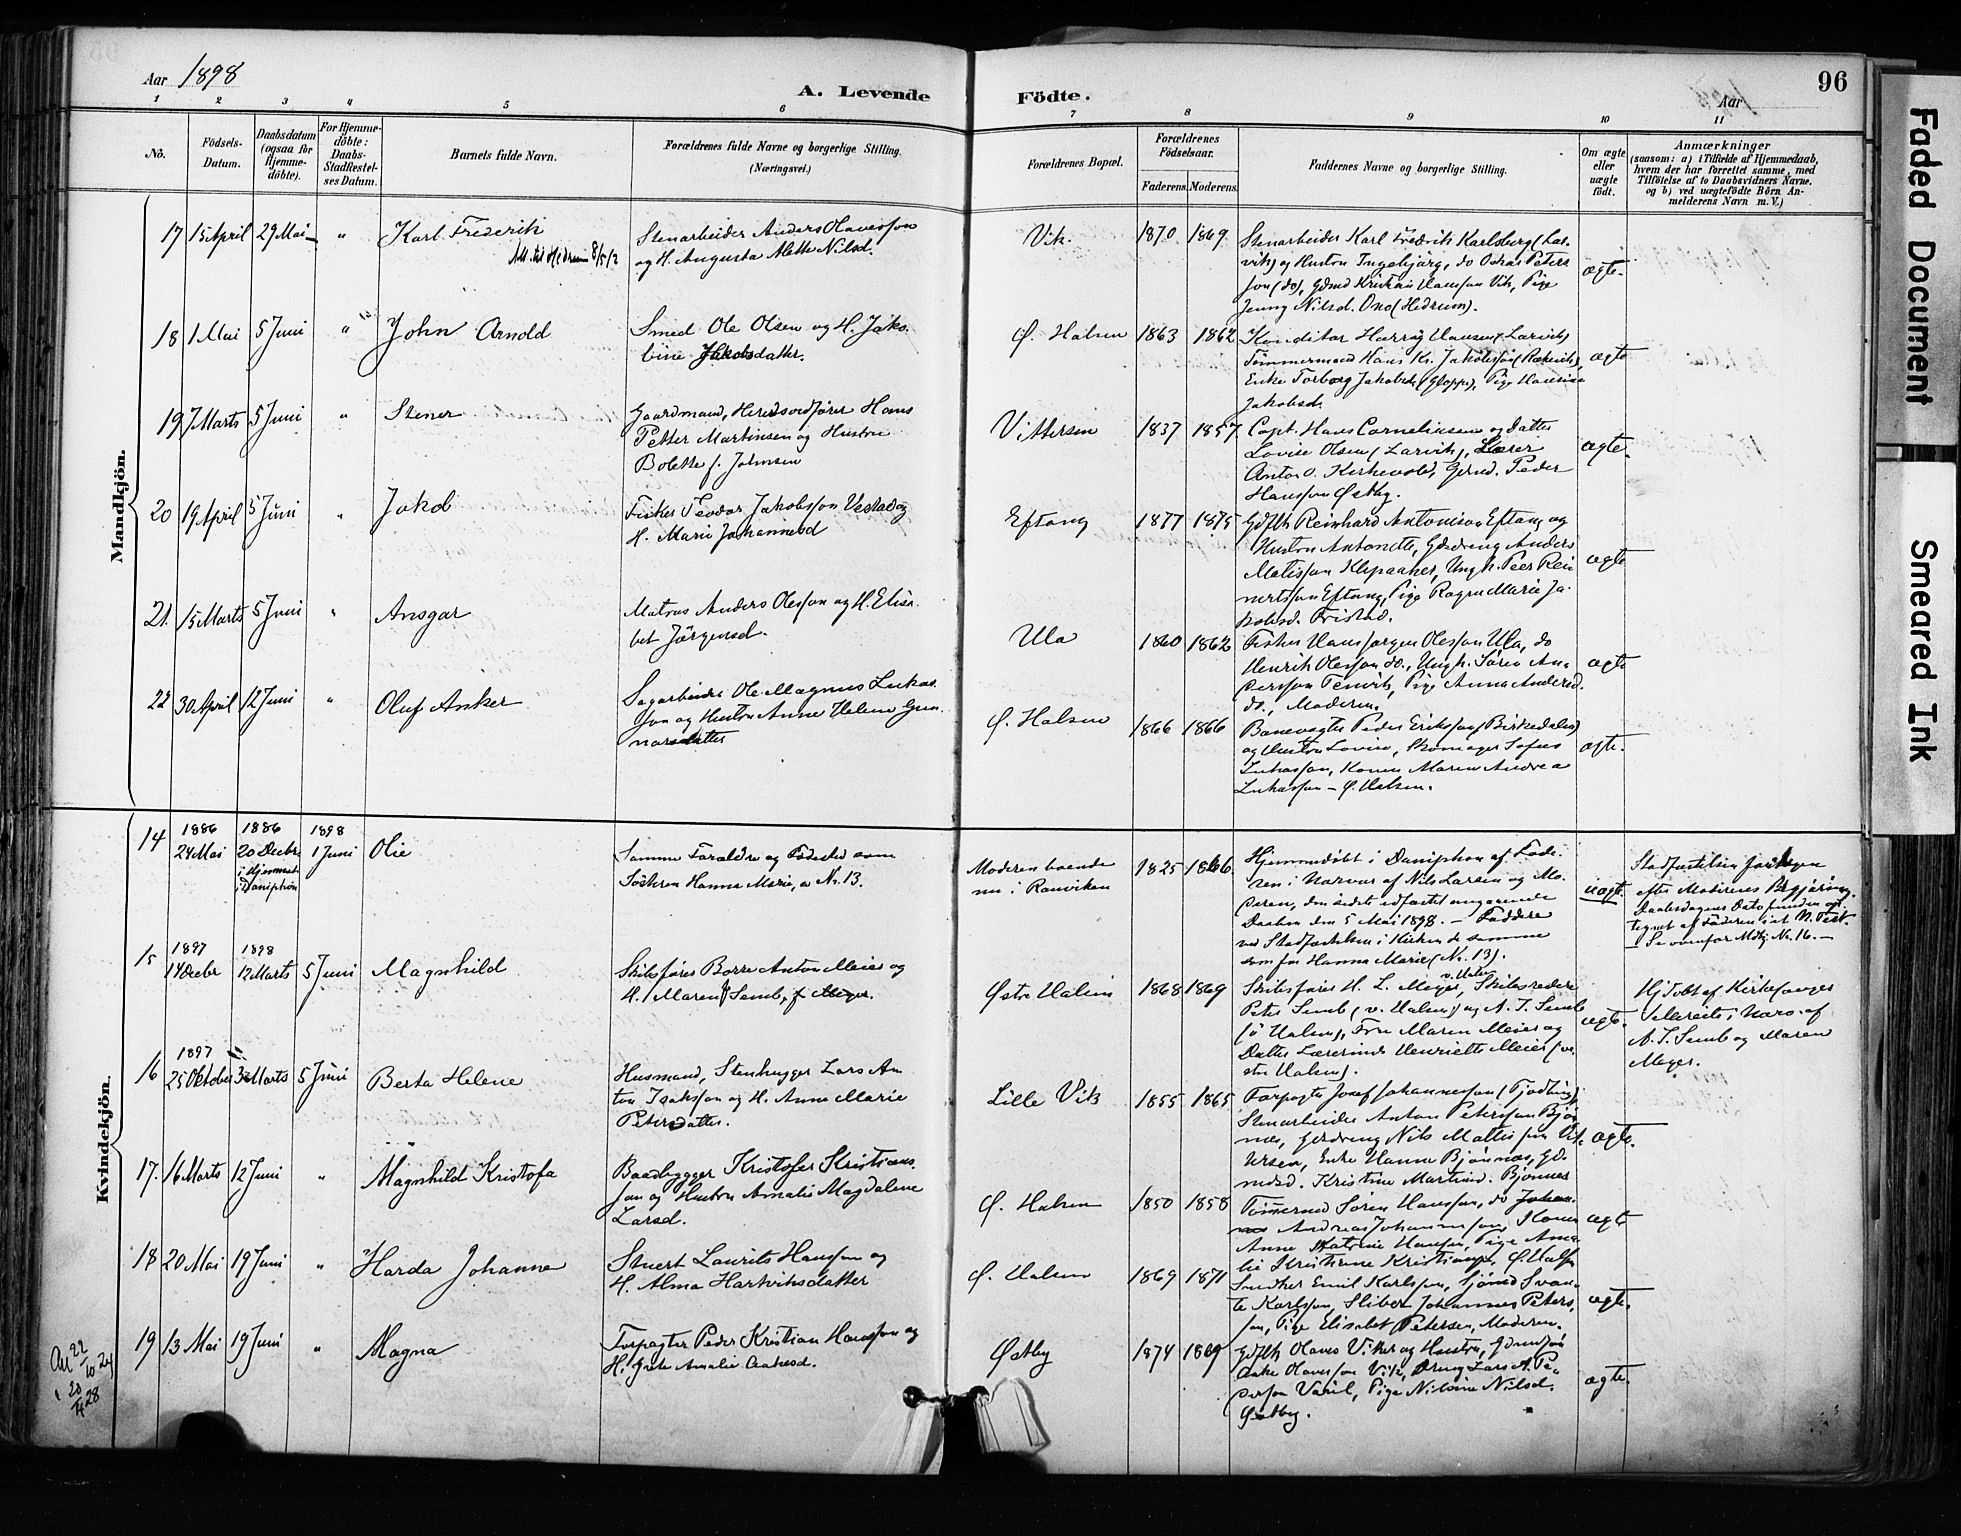 Aar 1898
A. Levende Födte.
Aar
96
1 2 3 4 5 6 7 8 9 10 11
No.
Födsels-Datum.
Daabsdatum (ogsaa for Hjemme-döbte).
For Hjemme-döbte: Daabs-Stadfæstel-ses Datum.
Barnets fulde Navn.
Forældrenes fulde Navne og borgerlige Stilling.
(Næringsvei.)
Forældrenes Bopæl.
Forældrenes Födselsaar.
Faderens. Moderens.
Faddernes Navne og borgerlige Stilling.
Om ægte eller uægte födt.
Anmærkninger
(saasom: a) i Tilfælde af Hjemmedaab,
hvem der har forrettet samme, med
Tilföielse af to Daabsvidners Navne,
og b) ved uægtefödte Börn An-
melderens Navn m. V.)
Mandkjön.
17 15 April 29 Mai " Karl Frederik
Stenarbeider Anders Olavsson
og H. Augusta Mette Nilsd.
Vik. 1870 1869
Stenarbeider Karl Fredrik Karlsberg (Lar-
vik) og Hustru Ingebjörg, do Oskar Peters
son (do), Gdmd Kristian Hansson Vik, Pige
Jenny Nilsd. Ono (Hedrum).
ægte.
18 1 Mai 5 Juni " John Arnold
Smed Ole Olsen og H. Jako-
bine Jakobsdatter.
Ø. Halsen 1863 1862
Konditor Harry Hansen (Larvik)
Tömmermand Hans Kr. Jakobsson (Rækevik),
Enke Torborg Jakobsd. (Gloppe), Pige Hansine
Jakobsd.
ægte
19 7 Marts 5 Juni " Stener
Gaardmand, Heredsordförer Hans
Petter Martinsen og Hustru
Bolette f. Johnsen
Vittersen 1837 1857
Capt. Hans Corneliusen og Datter
Lovise Olsen (Larvik), Lærer
Anton O. Kirkevold, Gdmd. Peder
Hansson Østby.
ægte.
20 19 April 5 Juni " Jakob
Fisker Teodor Jakobsson Vestad og
H. Marie Johannesd
Eftang 1877 1875
Gdflk Reinhard Antonison Eftang og
Hustru Antonette, Gdsdreng Anders
Matisson Klepaaker, Ungk. Peer Rei
nertsson Eftang, Pige Ragna Marie Ja-
kobsd. Fristad.
ægte
21. 15 Marts 5 Juni " Ansgar
Matros Anders Olesson og H. Elisa-
bet Jörgensd.
Ula 1860 1862
Fisker Hans Jørgen Olesson Ula, do
Henrik Olesson do., Ungk. Sören An-
dersson Tenvik, Pige Anna Andersd.
do., Moderen.
ægte
22 30 April 12 Juni " Oluf Anker
Sagarbeider Ole Magnus Lukas-
son og Hustru Anne Helene Gun-
narsdatter
Ø. Halsen 1866 1866
Banevogter Peder Eriksson (Birkedalen)
og Hustru Lovise, Skomager Sofus
Lukasson, Konen Maren Andrea
Lukasson – Ø. Halsen.
ægte.
Kvindekjön.
14 1886 24 Mai 1886 20 Decbr i Hjemmet i Daniphon 1898 1 Juni Olie
Samme Forældre og Födested som
Söstren Hanna Marie, No. 13.
Moderen boende
nu i Rauviken
1825 1866.
Hjemmedöbt i Daniphon af Fade-
ren i Nærvær af Nils Larsen og Mo-
deren, den sidste edfæstet angaaende
Daaben den 5 Mai 1898. – Faddere
ved Stadfæstelsen i Kirken de samme
som for Hanna Marie (No. 13).
uægt.
Stadfæstelsen foretagen
efter Moderenes Begjæring.
Daabsdagens Dato funden op-
tegnet af Faderen i et N. Test.
– Se ovenfor Mdkj No. 16. –
15 1897 14 Decbr 1898 12 Marts 5 Juni Magnhild
Skibsförer Borre Anton Meier og
H. Maren Semb, f. Meyer.
Østre Halsen 1868 1869
Skibsförer H. L. Meyer v. Halsen, Skibsreder
Peter Semb (v. Halsen) og A. I. Semb
(ö Halsen), Fru Maren Meier og
Datter Lærerinde Henriette Meier (ve-
stre Halsen).
ægte.
Hj. döbt af Kirkesanger
Sellereite i Nærv. af
A. I. Semb og Maren
Meyer.
16 1897 25 Oktober 3 Marts 5 Juni Berta Helene
Husmand, Stenhugger Lars An-
ton Isaksson og H. Anne Marie
Petersdatter.
Lille Vik 1855 1865
Forpagter Josef Johannesson (Tjodling)
Stenarbeider Anton Petersson Bjön-
næs, Gdsdreng Nils Mattisson Vit-
tersen, Enke Hanna Bjönnæs, Gd-
mdsd. Kristine Martinsd. Bjönnes
ægte.
17. 16 Marts 12 Juni " Magnhild Kristofa
Baadbygger Kristofer Kristians-
son og Hustru Amalie Magdalene
Larsd.
Ø. Halsen 1850 1858
Tömmermd Sören Hansson, do Johan-
nes Andreas Johannesson, Konen
Anne Katrine Hansen, Pige Ama-
lie Kristiane Kristiansen, Ø. Halsen
ægte
18 20 Mai 19 Juni " Harda Johanne
Stuert Laurits Hansson og
H. Alma Hartvigsdatter
Ø. Halsen 1869 1871
Snedker Emil Karlsson, Sjömd Svan-
te Karlsson, Sliber Johannes Peters-
son, Pige Elisabet Petersen, Moderen.
ægte.
19 13 Mai 19 Juni " Magna
Forpagter Peder Kristian Hansson og
H. Grete Amalie Aakesd.
Østby 1874 1869
Gdflk Olaves Viker og Hustru, Gdmdsön
Aake Olavesson Vik, Dreng Lars A. Pe-
dersson Varil, Pige Nilsine Nilsd.
Østby.
ægte.
Att 22/10 24
" 20/4 28
Faded Document
Smeared Ink